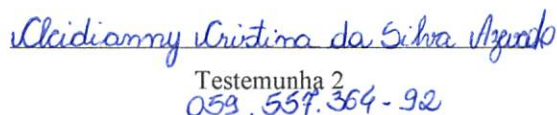 Alcidianny Cristina da Silva Azevedo
Testemunha 2
059.557.364-92